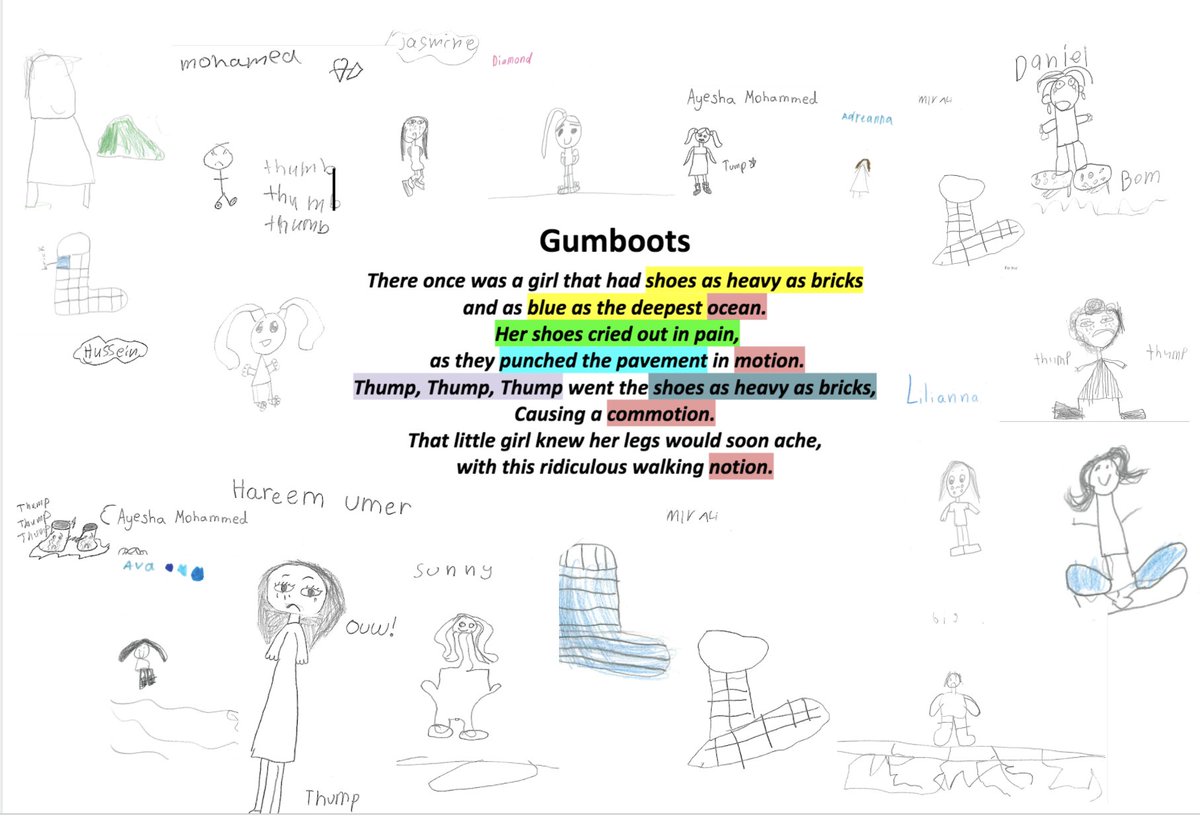 mohamed
Jasmine
Diamond
Ayesha Mohammed
Tump
Adreanna
MIR ALI
Daniel
Bom
thumb
thumb
thumb
brick
Hussein
Gumboots
There once was a girl that had shoes as heavy as bricks
and as blue as the deepest ocean.
Her shoes cried out in pain,
as they punched the pavement in motion.
Thump, Thump, Thump went the shoes as heavy as bricks,
Causing a commotion.
That little girl knew her legs would soon ache,
with this ridiculous walking notion.
thump
thump
Lilianna
Thump
Thump
Thump
Ayesha Mohammed
Ava
Hareem umer
MIR ALI
sunny
ouw!
Thump